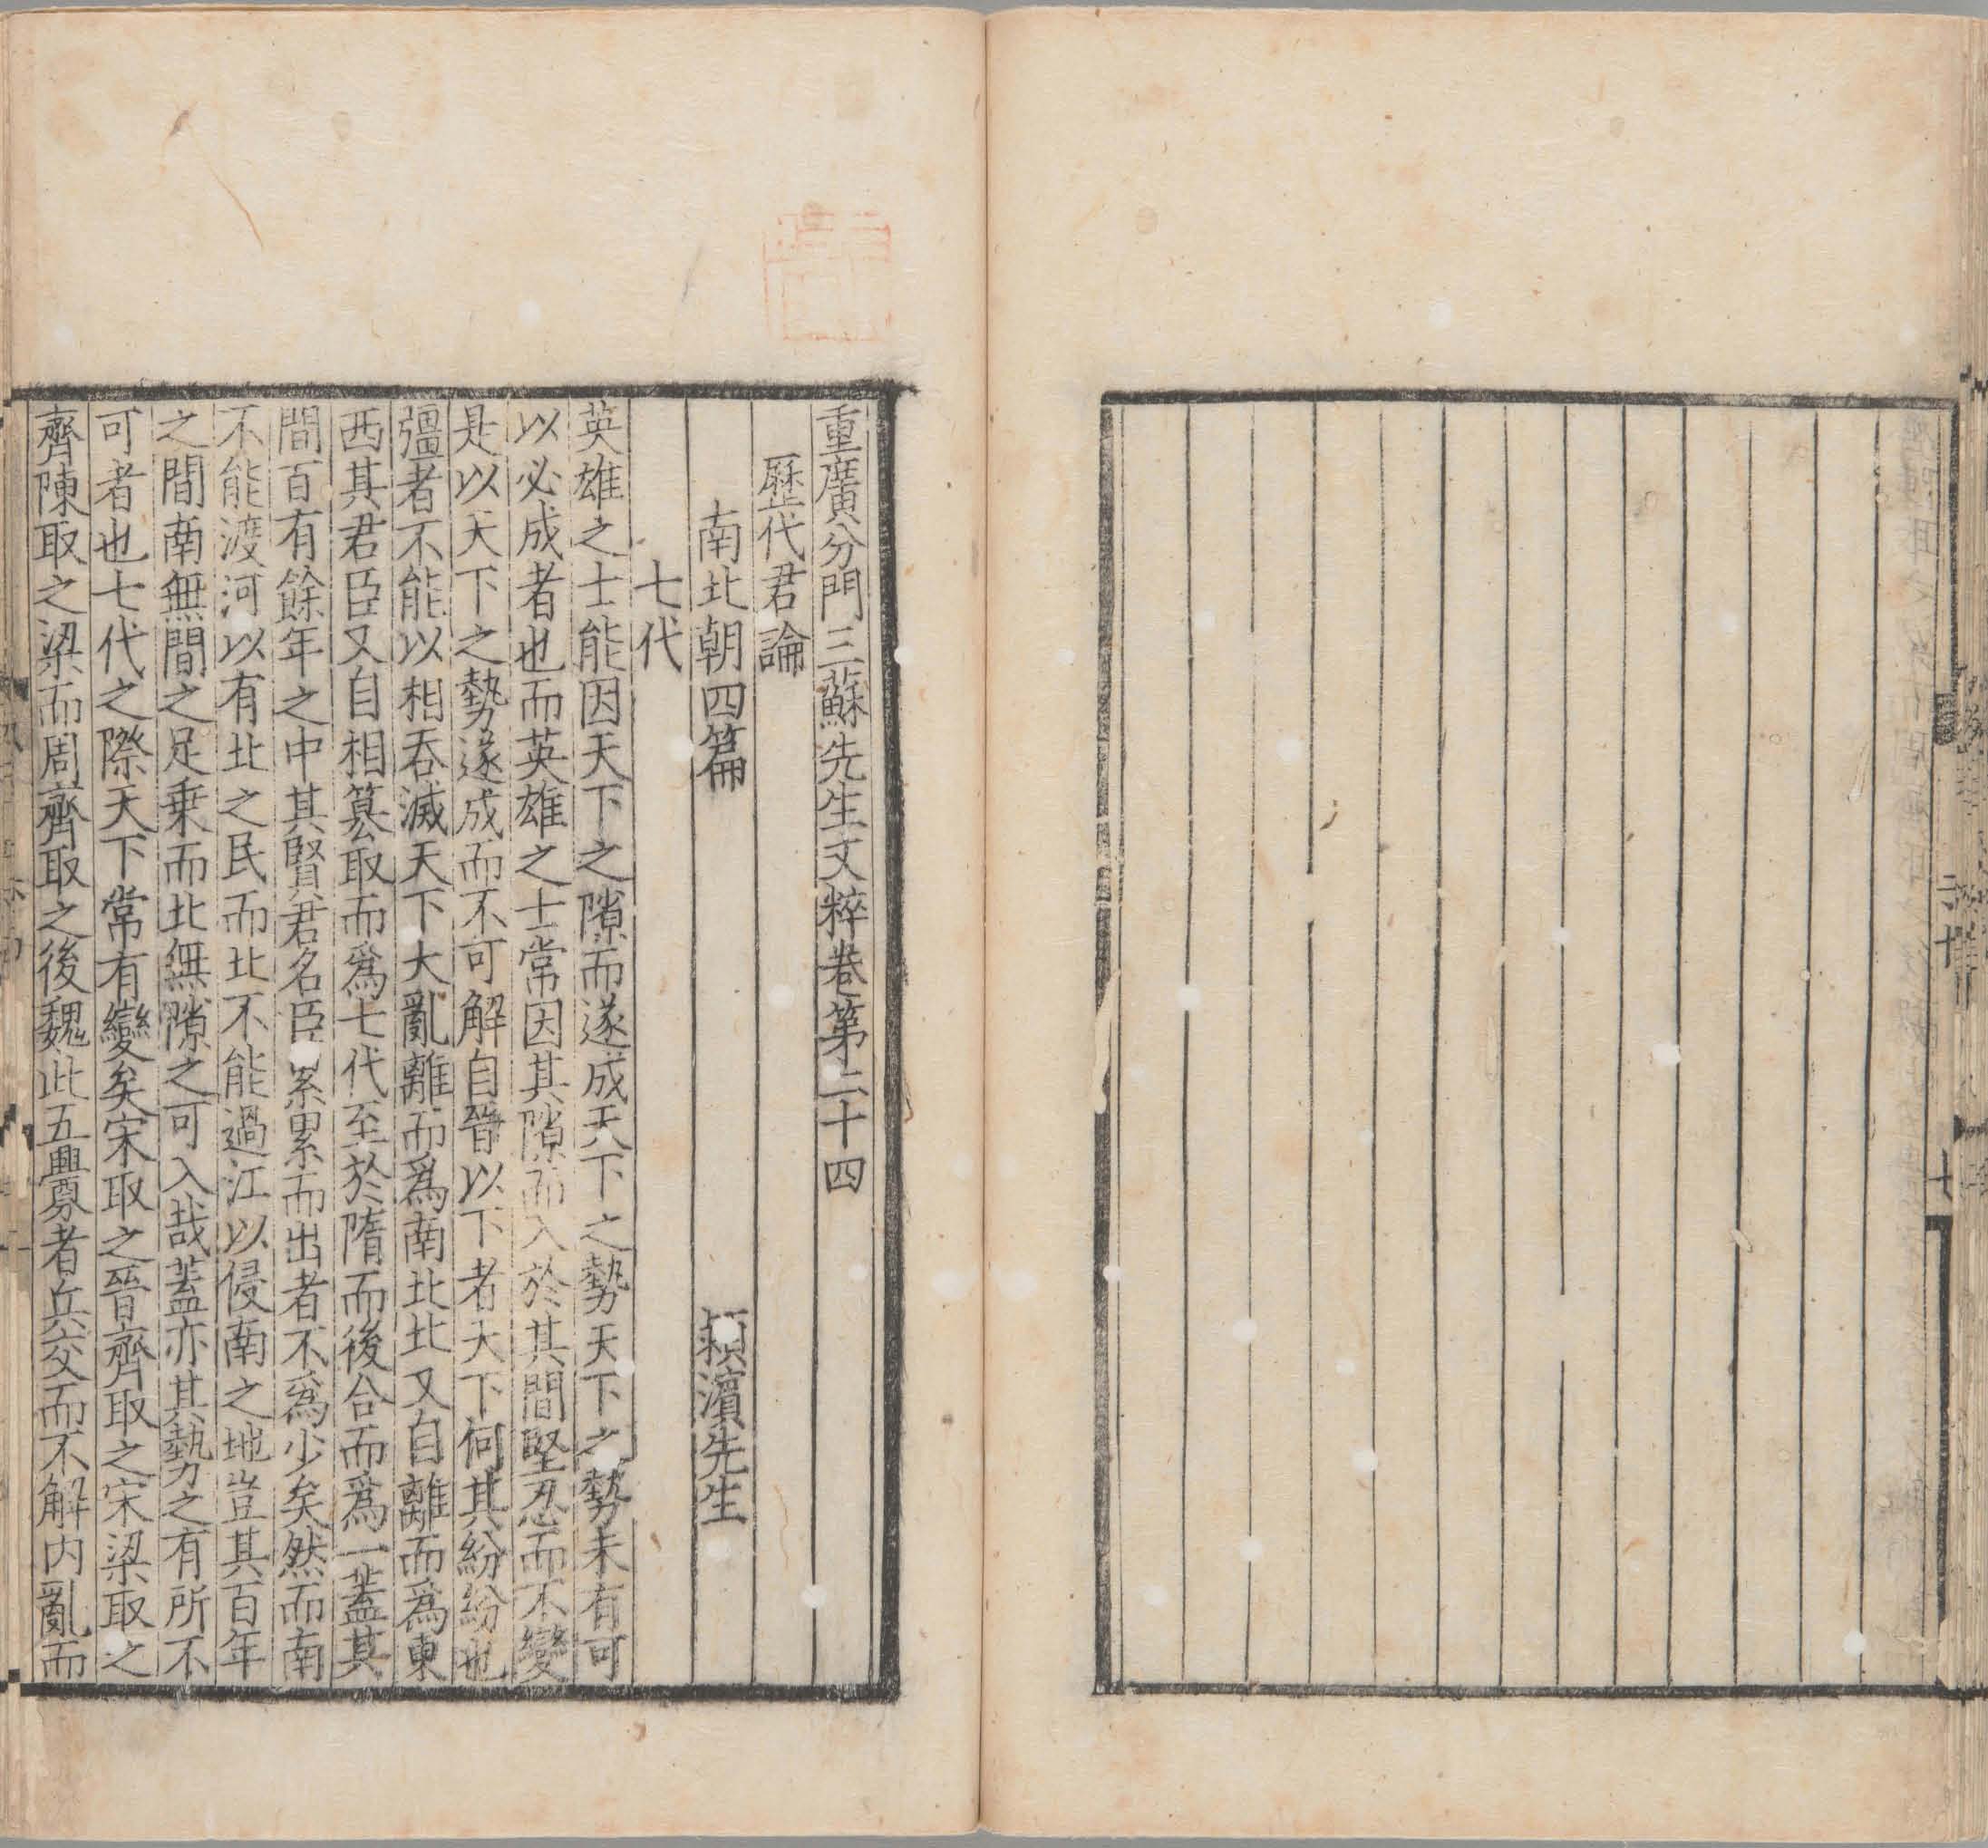 重廣分門三蘇先生文粹卷第二十四
歷代君論
南北朝四篇 潁濱先生
七代
英雄之士能因天下之隙而遂成天下之勢天下之勢未有可
以必成者也而英雄之士常因其隙而入於其間堅忍而不變
是以天下之勢遂成而不可解自晉以下者天下何其紛紛也
彊者不能以相吞滅天下大亂離而爲南北北又自離而爲東
西其君臣又自相篡取而爲七代至於隋而後合而爲一蓋其
間百有餘年之中其賢君名臣累累而出者不爲少矣然而南
不能渡河以有北之民而北不能過江以侵南之地豈其百年
之間南無間之足乗而北無隙之可入哉蓋亦其勢之有所不
可者也七代之際天下常有變矣宋取之晉齊取之宋梁取之
齊陳取之梁而周齊取之後魏此五釁者兵交而不解内亂而